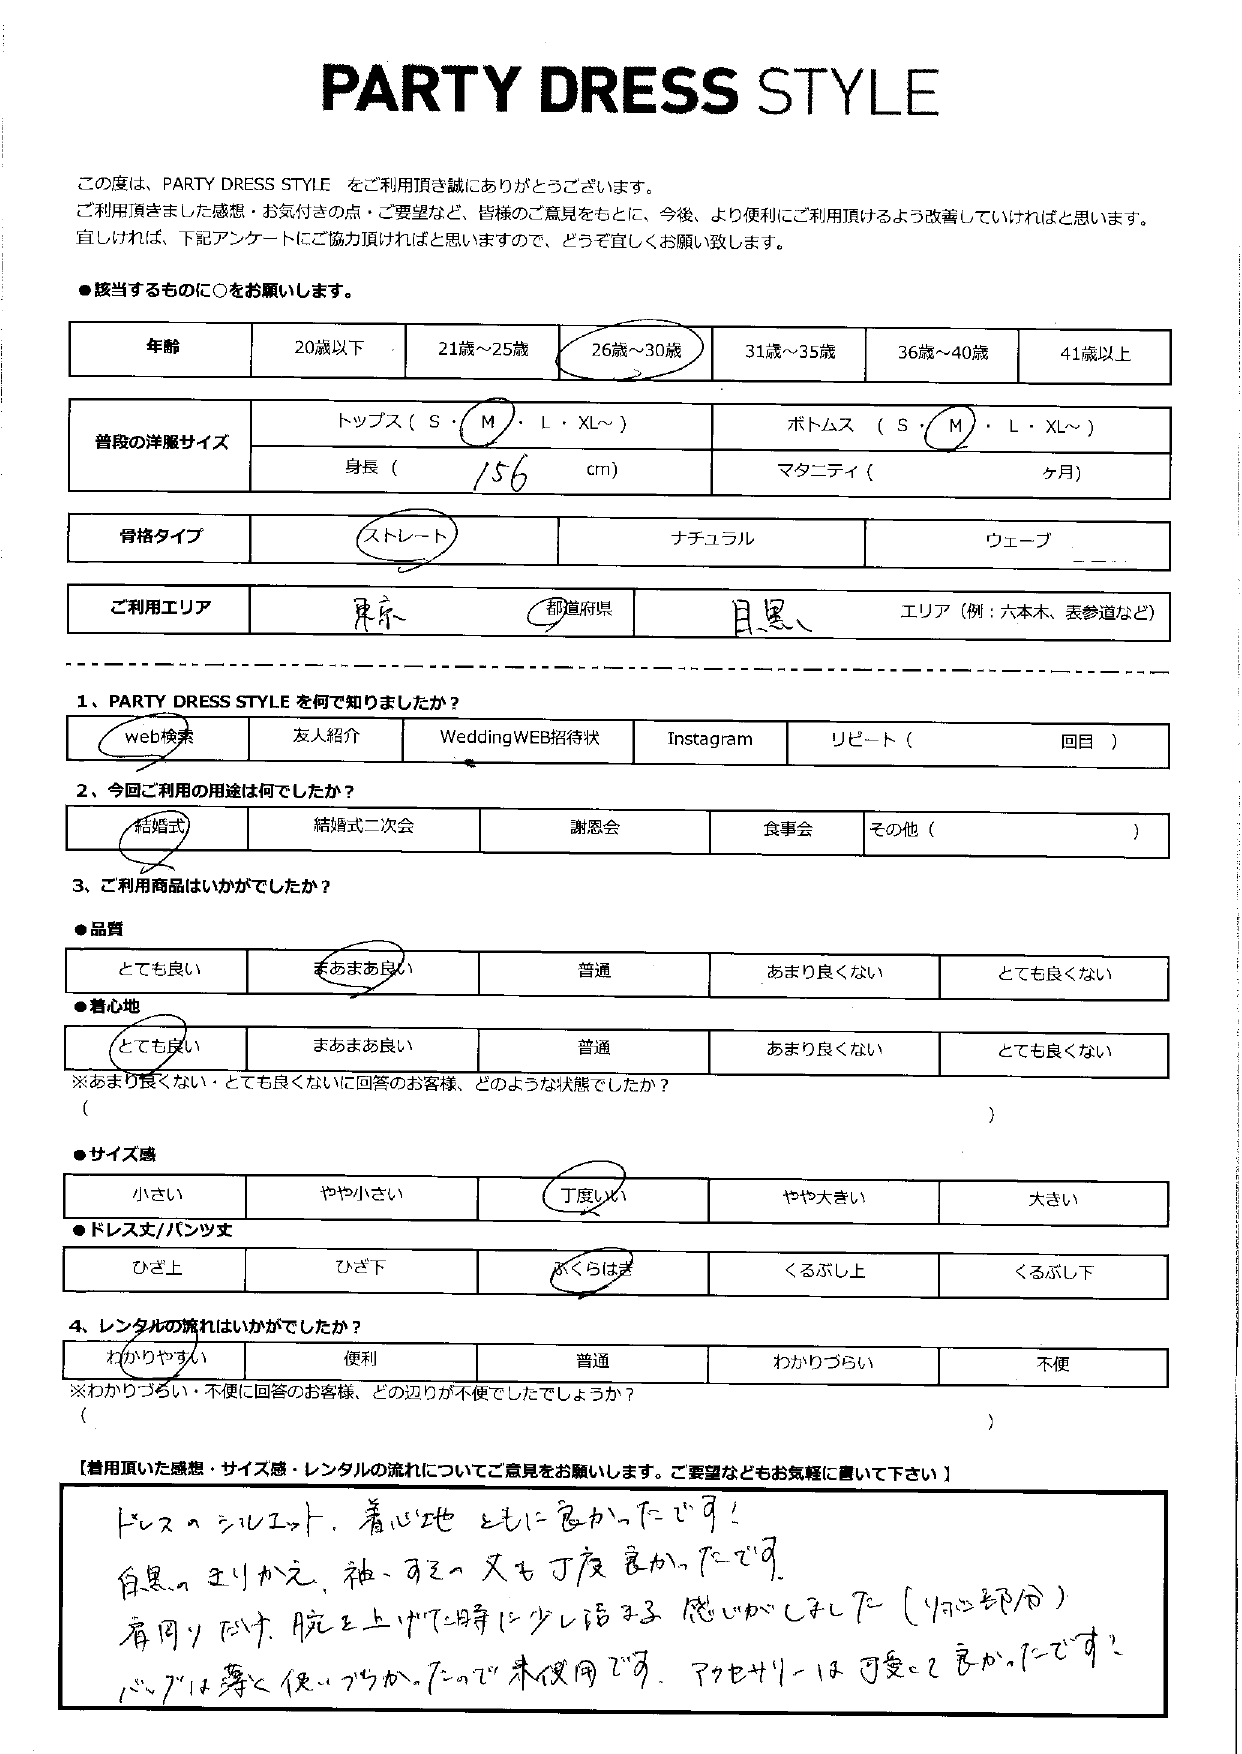 PARTY DRESS STYLE
この度は、PARTY DRESS STYLE をご利用頂き誠にありがとうございます。
ご利用頂きました感想・お気付きの点・ご要望など、皆様のご意見をもとに、今後、より便利にご利用頂けるよう改善していければと思います。
宜しければ、下記アンケートにご協力頂ければと思いますので、どうぞ宜しくお願い致します。
●該当するものに○をお願いします。
年齢 20歳以下 21歳～25歳 26歳～30歳 31歳～35歳 36歳～40歳 41歳以上
普段の洋服サイズ トップス ( S ・ M ・ L ・ XL～ ) ボトムス ( S ・ M ・ L ・ XL～ )
身長 ( 156 cm) マタニティ ( ヶ月)
骨格タイプ ストレート ナチュラル ウェーブ
ご利用エリア 東京 都道府県 目黒 エリア（例：六本木、表参道など）
1、PARTY DRESS STYLE を何で知りましたか？
web検索 友人紹介 WeddingWEB招待状 Instagram リピート ( 回目 )
2、今回ご利用の用途は何でしたか？
結婚式 結婚式二次会 謝恩会 食事会 その他 ( )
3、ご利用商品はいかがでしたか？
●品質
とても良い まあまあ良い 普通 あまり良くない とても良くない
●着心地
とても良い まあまあ良い 普通 あまり良くない とても良くない
※あまり良くない・とても良くないに回答のお客様、どのような状態でしたか？
( )
●サイズ感
小さい やや小さい 丁度いい やや大きい 大きい
●ドレス丈/パンツ丈
ひざ上 ひざ下 ふくらはぎ くるぶし上 くるぶし下
4、レンタルの流れはいかがでしたか？
わかりやすい 便利 普通 わかりづらい 不便
※わかりづらい・不便に回答のお客様、どの辺りが不便でしたでしょうか？
( )
【着用頂いた感想・サイズ感・レンタルの流れについてご意見をお願いします。ご要望などもお気軽に書いて下さい】
ドレスのシルエット、着心地ともに良かったです！
白黒のきりかえ、袖、すその丈も丁度良かったです。
肩周りだけ、腕を上げた時に少し詰まる感じがしました（リボン部分）
バッグは薄く使いづらかったので未使用です。アクセサリーは可愛くて良かったです！